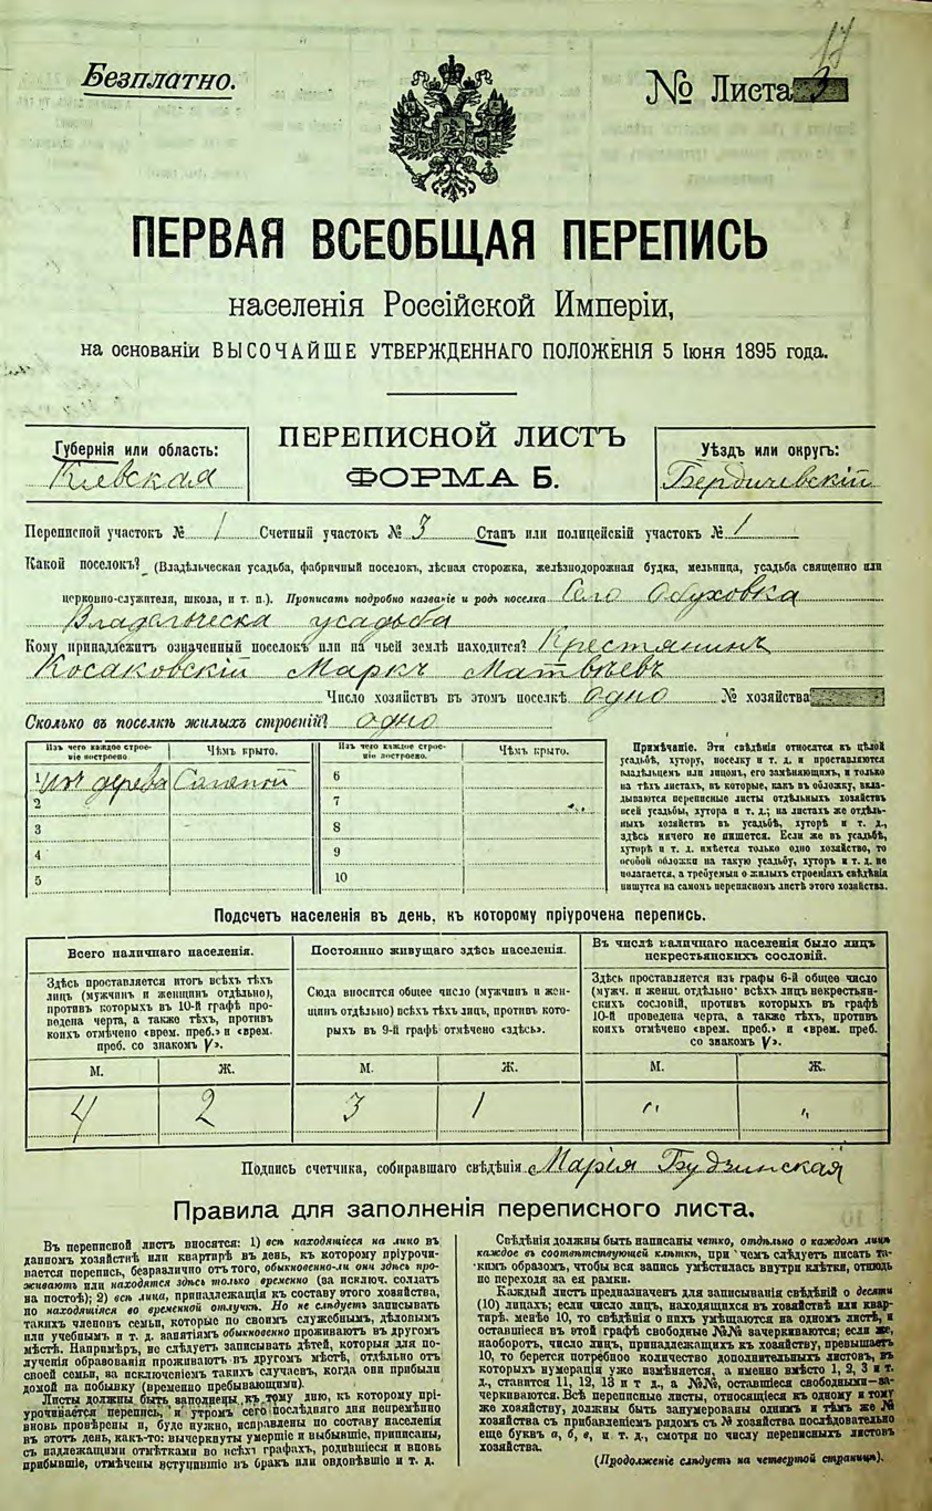 17
Безплатно.
№ Листа 3
ПЕРВАЯ ВСЕОБЩАЯ ПЕРЕПИСЬ
населенія Россійской Имперіи,
на основаніи ВЫСОЧАЙШЕ УТВЕРЖДЕННАГО ПОЛОЖЕНІЯ 5 Іюня 1895 года.
ПЕРЕПИСНОЙ ЛИСТЪ
ФОРМА Б.
Губернія или область:
Кіевская
Уѣздъ или округъ:
Бердичевскій
Переписной участокъ № 1 Счетный участокъ № 3 Станъ или полицейскій участокъ № 1
Какой поселокъ? (Владѣльческая усадьба, фабричный поселокъ, лѣсная сторожка, желѣзнодорожная будка, мельница, усадьба священно или
церковно-служителя, школа, и т. п.). Прописать подробно названіе и родъ поселка Село Обуховка
Владельческа усадьба
Кому принадлежитъ означенный поселокъ или на чьей землѣ находится? Крестянинъ
Косаковскій Маркъ Матвѣевъ
Число хозяйствъ въ этомъ поселкѣ одно № хозяйства
Сколько въ поселкѣ жилыхъ строеній? одно
Изъ чего каждое строе-
ніе построено
Чѣмъ крыто.
Изъ чего каждое строе-
ніе построено.
Чѣмъ крыто.
1 изъ дерева
2
3
4
5
6
7
8
9
10
Примѣчаніе. Эти свѣдѣнія относятся къ цѣлой
усадьбѣ, хутору, поселку и т. д. и проставляются
владѣльцемъ или лицомъ, его замѣняющимъ, и только
на тѣхъ листахъ, въ которые, какъ въ обложку, вкла-
дываются переписные листы отдѣльныхъ хозяйствъ
всей усадьбы, хутора и т. д.; на листахъ же отдѣль-
ныхъ хозяйствъ въ усадьбѣ, хуторѣ и т. д.,
здѣсь ничего не пишется. Если же въ усадьбѣ,
хуторѣ и т. д. имѣется только одно хозяйство, то
особой обложки на такую усадьбу, хуторъ и т. д. не
полагается, а требуемыя о жилыхъ строеніяхъ свѣдѣнія
пишутся на самомъ переписномъ листѣ этого хозяйства.
Подсчетъ населенія въ день, къ которому пріурочена перепись.
Всего наличнаго населенія.
Здѣсь проставляется итогъ всѣхъ тѣхъ
лицъ (мужчинъ и женщинъ отдѣльно),
противъ которыхъ въ 10-й графѣ про-
ведена черта, а также тѣхъ, противъ
коихъ отмѣчено «врем. преб.» и «врем.
преб. со знакомъ V».
Постоянно живущаго здѣсь населенія.
Сюда вносится общее число (мужчинъ и жен-
щинъ отдѣльно) всѣхъ тѣхъ лицъ, противъ кото-
рыхъ въ 9-й графѣ отмѣчено «здѣсь».
Въ числѣ наличнаго населенія было лицъ
некрестьянскихъ сословій.
Здѣсь проставляется изъ графы 6-й общее число
(мужч. и женщ. отдѣльно) всѣхъ лицъ некрестьян-
скихъ сословій, противъ которыхъ въ графѣ
10-й проведена черта, а также тѣхъ, противъ
коихъ отмѣчено «врем. преб.» и «врем. преб.
со знакомъ V».
М. Ж. М. Ж. М. Ж.
4 2 3 1 " "
Подпись счетчика, собиравшаго свѣдѣнія Марія Будзинская
Правила для заполненія переписного листа.
Въ переписной листъ вносятся: 1) всѣ находящіеся на лицо въ
данномъ хозяйствѣ или квартирѣ въ день, къ которому пріурочи-
вается перепись, безразлично отъ того, обыкновенно-ли они здѣсь про-
живаютъ или находятся здѣсь только временно (за исключ. солдатъ
на постоѣ); 2) всѣ лица, принадлежащія къ составу этого хозяйства,
но находящіяся во временной отлучкѣ. Но не слѣдуетъ записывать
такихъ членовъ семьи, которые по своимъ служебнымъ, дѣловымъ
или учебнымъ и т. д. занятіямъ обыкновенно проживаютъ въ другомъ
мѣстѣ. Напримѣръ, не слѣдуетъ записывать дѣтей, которыя для по-
лученія образованія проживаютъ въ другомъ мѣстѣ, отдѣльно отъ
своей семьи, за исключеніемъ такихъ случаевъ, когда они прибыли
домой на побывку (временно пребывающими).
Листы должны быть заполнены къ тому дню, къ которому прі-
урочивается перепись, и утромъ сего послѣдняго дня непремѣнно
вновь провѣрены и, буде нужно, исправлены по составу населенія
въ этотъ день, какъ-то: вычеркнуты умершіе и выбывшіе, приписаны,
съ надлежащими отмѣтками во всѣхъ графахъ, родившіеся и вновь
прибывшіе, отмѣчены вступившіе въ бракъ или овдовѣвшіе и т. д.
Свѣдѣнія должны быть написаны четко, отдѣльно о каждомъ лицѣ
каждое въ соотвѣтствующей клѣткѣ, при чемъ слѣдуетъ писать та-
кимъ образомъ, чтобы вся запись умѣстилась внутри клѣтки, отнюдь
не переходя за ея рамки.
Каждый листъ предназначенъ для записыванія свѣдѣній о десяти
(10) лицахъ; если число лицъ, находящихся въ хозяйствѣ или квар-
тирѣ, менѣе 10, то свѣдѣнія о нихъ умѣщаются на одномъ листѣ, и
оставшіеся въ этой графѣ свободные №№ зачеркиваются; если же,
наоборотъ, число лицъ, принадлежащихъ къ хозяйству, превышаетъ
10, то берется потребное количество дополнительныхъ листовъ, въ
которыхъ нумерація уже измѣняется, а именно вмѣсто 1, 2, 3 и т.
д., ставится 11, 12, 13 и т д., а №№, оставшіеся свободными—за-
черкиваются. Всѣ переписные листы, относящіеся къ одному и тому
же хозяйству, должны быть занумерованы однимъ и тѣмъ же №
хозяйства съ прибавленіемъ рядомъ съ № хозяйства послѣдовательно
еще буквъ а, б, в, и т. д., смотря по числу переписныхъ листовъ
хозяйства.
(Продолженіе слѣдуетъ на четвертой страницѣ).